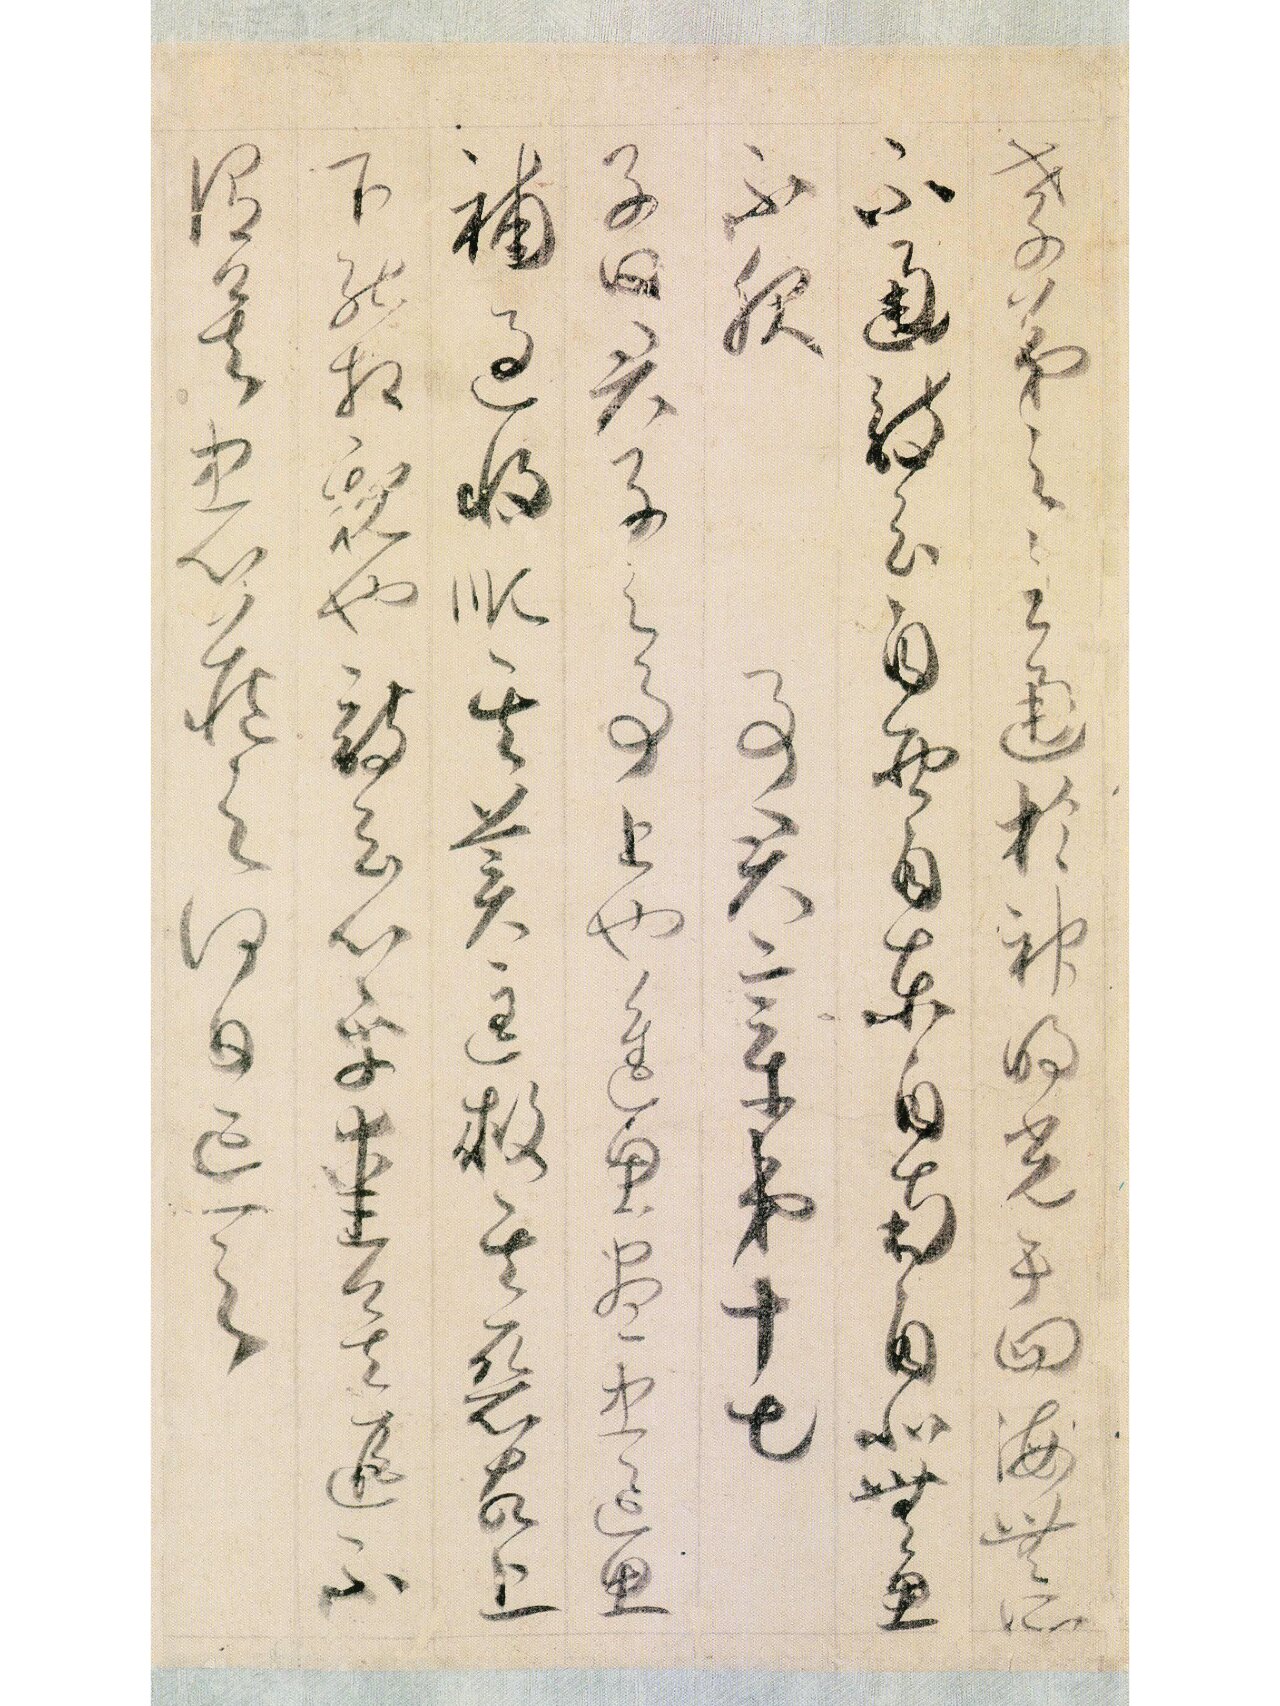 孝弟之至通於神明光于四海無所
不通詩云自西自東自南自北無思
不服　事君章第十七
子曰君子之事上也進思盡忠退思
補過將順其美匡救其惡故上
下能相親也詩云心乎愛矣遐不
謂矣中心藏之何日忘之